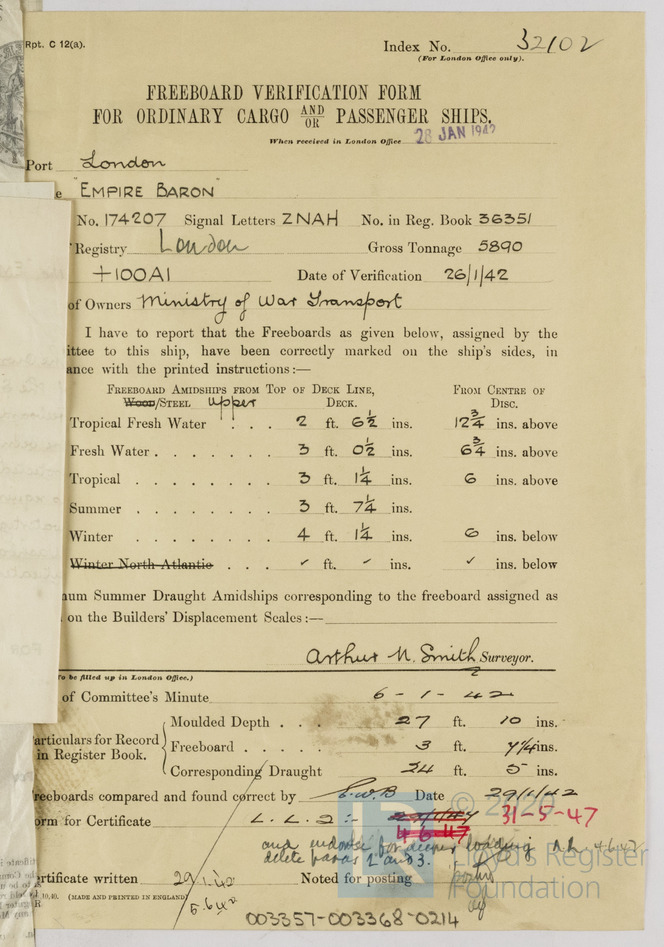 Rpt. C 12(a).
Index No. 32102
(For London Office only).
FREEBOARD VERIFICATION FORM
FOR ORDINARY CARGO AND/OR PASSENGER SHIPS.
When received in London Office 28 JAN 1942
Port London
"EMPIRE BARON"
No. 174207 Signal Letters ZNAH No. in Reg. Book 36351
Registry London Gross Tonnage 5890
+100A1 Date of Verification 26/1/42
of Owners Ministry of War Transport
I have to report that the Freeboards as given below, assigned by the
ittee to this ship, have been correctly marked on the ship's sides, in
ance with the printed instructions:—
FREEBOARD AMIDSHIPS FROM TOP OF DECK LINE, FROM CENTRE OF
WOOD/STEEL upper DECK. DISC.
Tropical Fresh Water . . . 2 ft. 6½ ins. 12¾ ins. above
Fresh Water . . . . . . 3 ft. 0½ ins. 6¾ ins. above
Tropical . . . . . . . 3 ft. 1¼ ins. 6 ins. above
Summer . . . . . . . 3 ft. 7¼ ins.
Winter . . . . . . . 4 ft. 1¼ ins. 6 ins. below
Winter North Atlantic . . . ✓ ft. ✓ ins. ✓ ins. below
um Summer Draught Amidships corresponding to the freeboard assigned as
on the Builders' Displacement Scales:—
Arthur N. Smith Surveyor.
To be filled up in London Office.)
of Committee's Minute 6-1-42
Moulded Depth . . . 27 ft. 10 ins.
articulars for Record
in Register Book.
Freeboard . . . . . 3 ft. 7¼ ins.
Corresponding Draught 24 ft. 5 ins.
reeboards compared and found correct by E.W.B Date 29/1/42
orm for Certificate L.L.2:- 31-5-47
4.6.47
and endorse for deeper loading 4.6.47
delete paras 1 and 3.
ertificate written 29.1.42 Noted for posting
5.6.42
10,40. (MADE AND PRINTED IN ENGLAND)
003357-003368-0214
© 2020
Lloyd's Register
Foundation